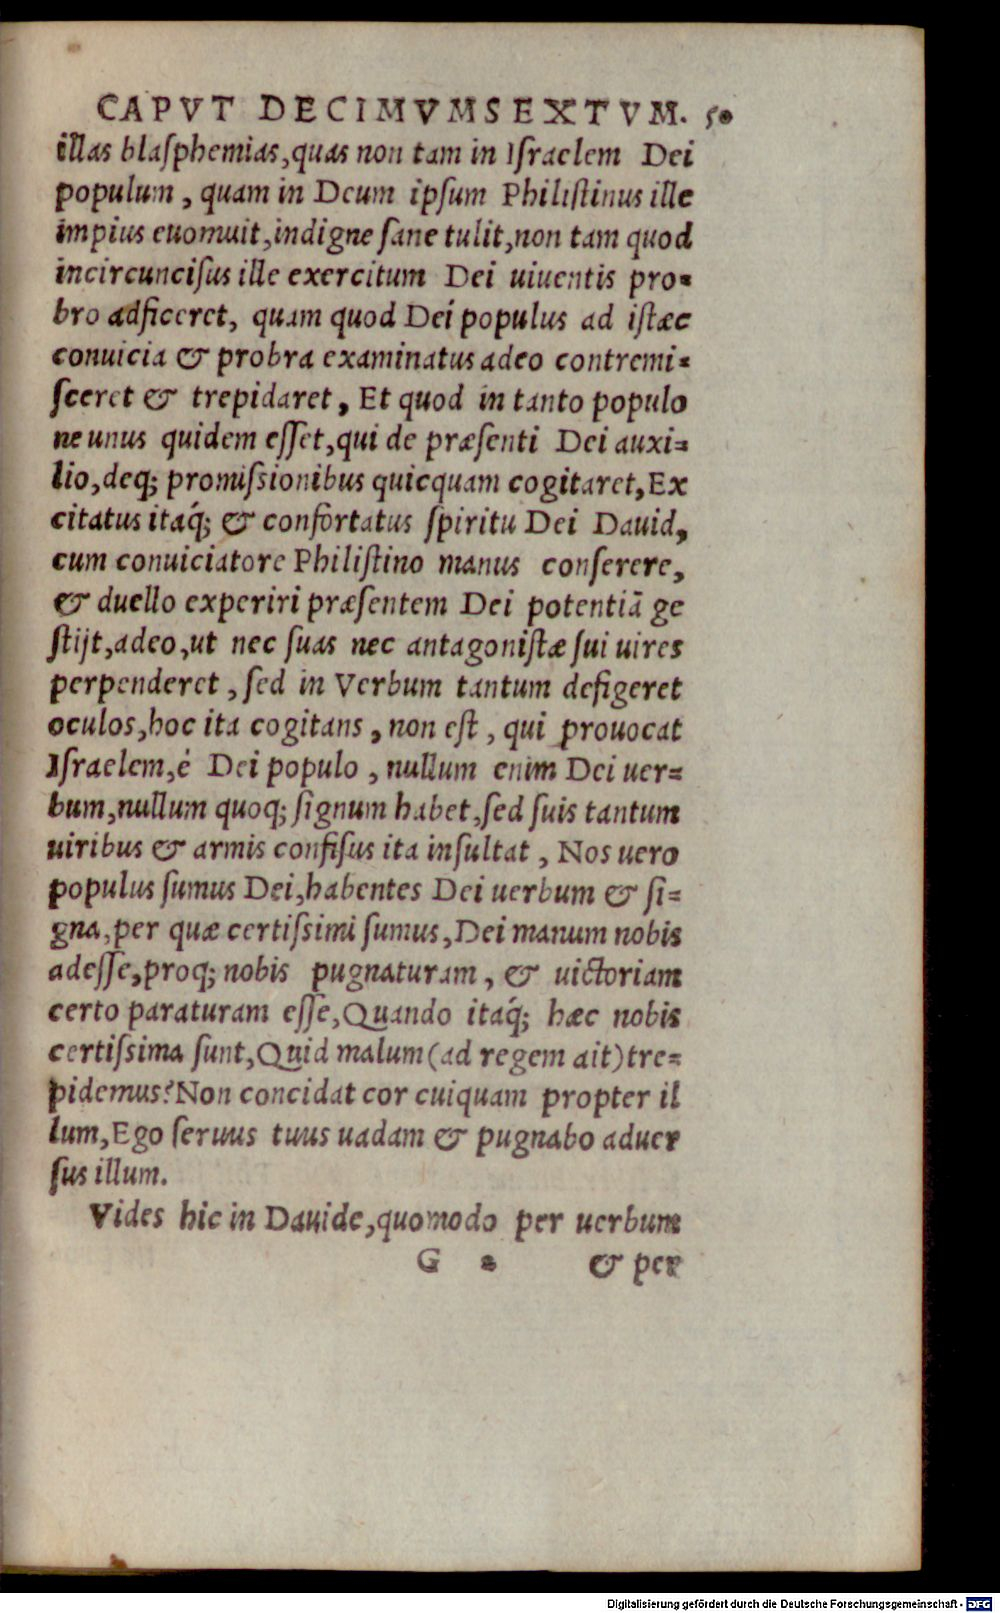 CAPVT DECIMVMSEXTVM. 50
illas blaſphemias,quas non tam in Iſraelem Dei
populum, quam in Deum ipſum Philiſtinus ille
impius euomuit,indigne ſane tulit,non tam quod
incircunciſus ille exercitum Dei uiuentis pro-
bro adficeret, quam quod Dei populus ad iſtæc
conuicia & probra examinatus adeo contremi-
ſceret & trepidaret, Et quod in tanto populo
ne unus quidem eſſet,qui de præſenti Dei auxi-
lio,deq; promiſsionibus quicquam cogitaret,Ex
citatus itaq́; & confortatus ſpiritu Dei Dauid,
cum conuiciatore Philiſtino manus conſerere,
& duello experiri præſentem Dei potentiã ge
ſtijt,adeo,ut nec ſuas nec antagoniſtæ ſui uires
perpenderet, ſed in Verbum tantum defigeret
oculos,hoc ita cogitans, non eſt, qui prouocat
Iſraelem,è Dei populo, nullum enim Dei uer-
bum,nullum quoq; ſignum habet,ſed ſuis tantum
uiribus & armis confiſus ita inſultat, Nos uero
populus ſumus Dei,habentes Dei uerbum & ſi-
gna,per quæ certiſsimi ſumus,Dei manum nobis
adeſſe,proq; nobis pugnaturam, & uictoriam
certo paraturam eſſe,Quando itaq́; hæc nobis
certiſsima ſunt,Quid malum(ad regem ait)tre-
pidemus?Non concidat cor cuiquam propter il
lum,Ego ſeruus tuus uadam & pugnabo aduer
ſus illum.
Vides hic in Dauide,quomodo per uerbum
G 2 & per
Digitalisierung gefördert durch die Deutsche Forschungsgemeinschaft - DFG